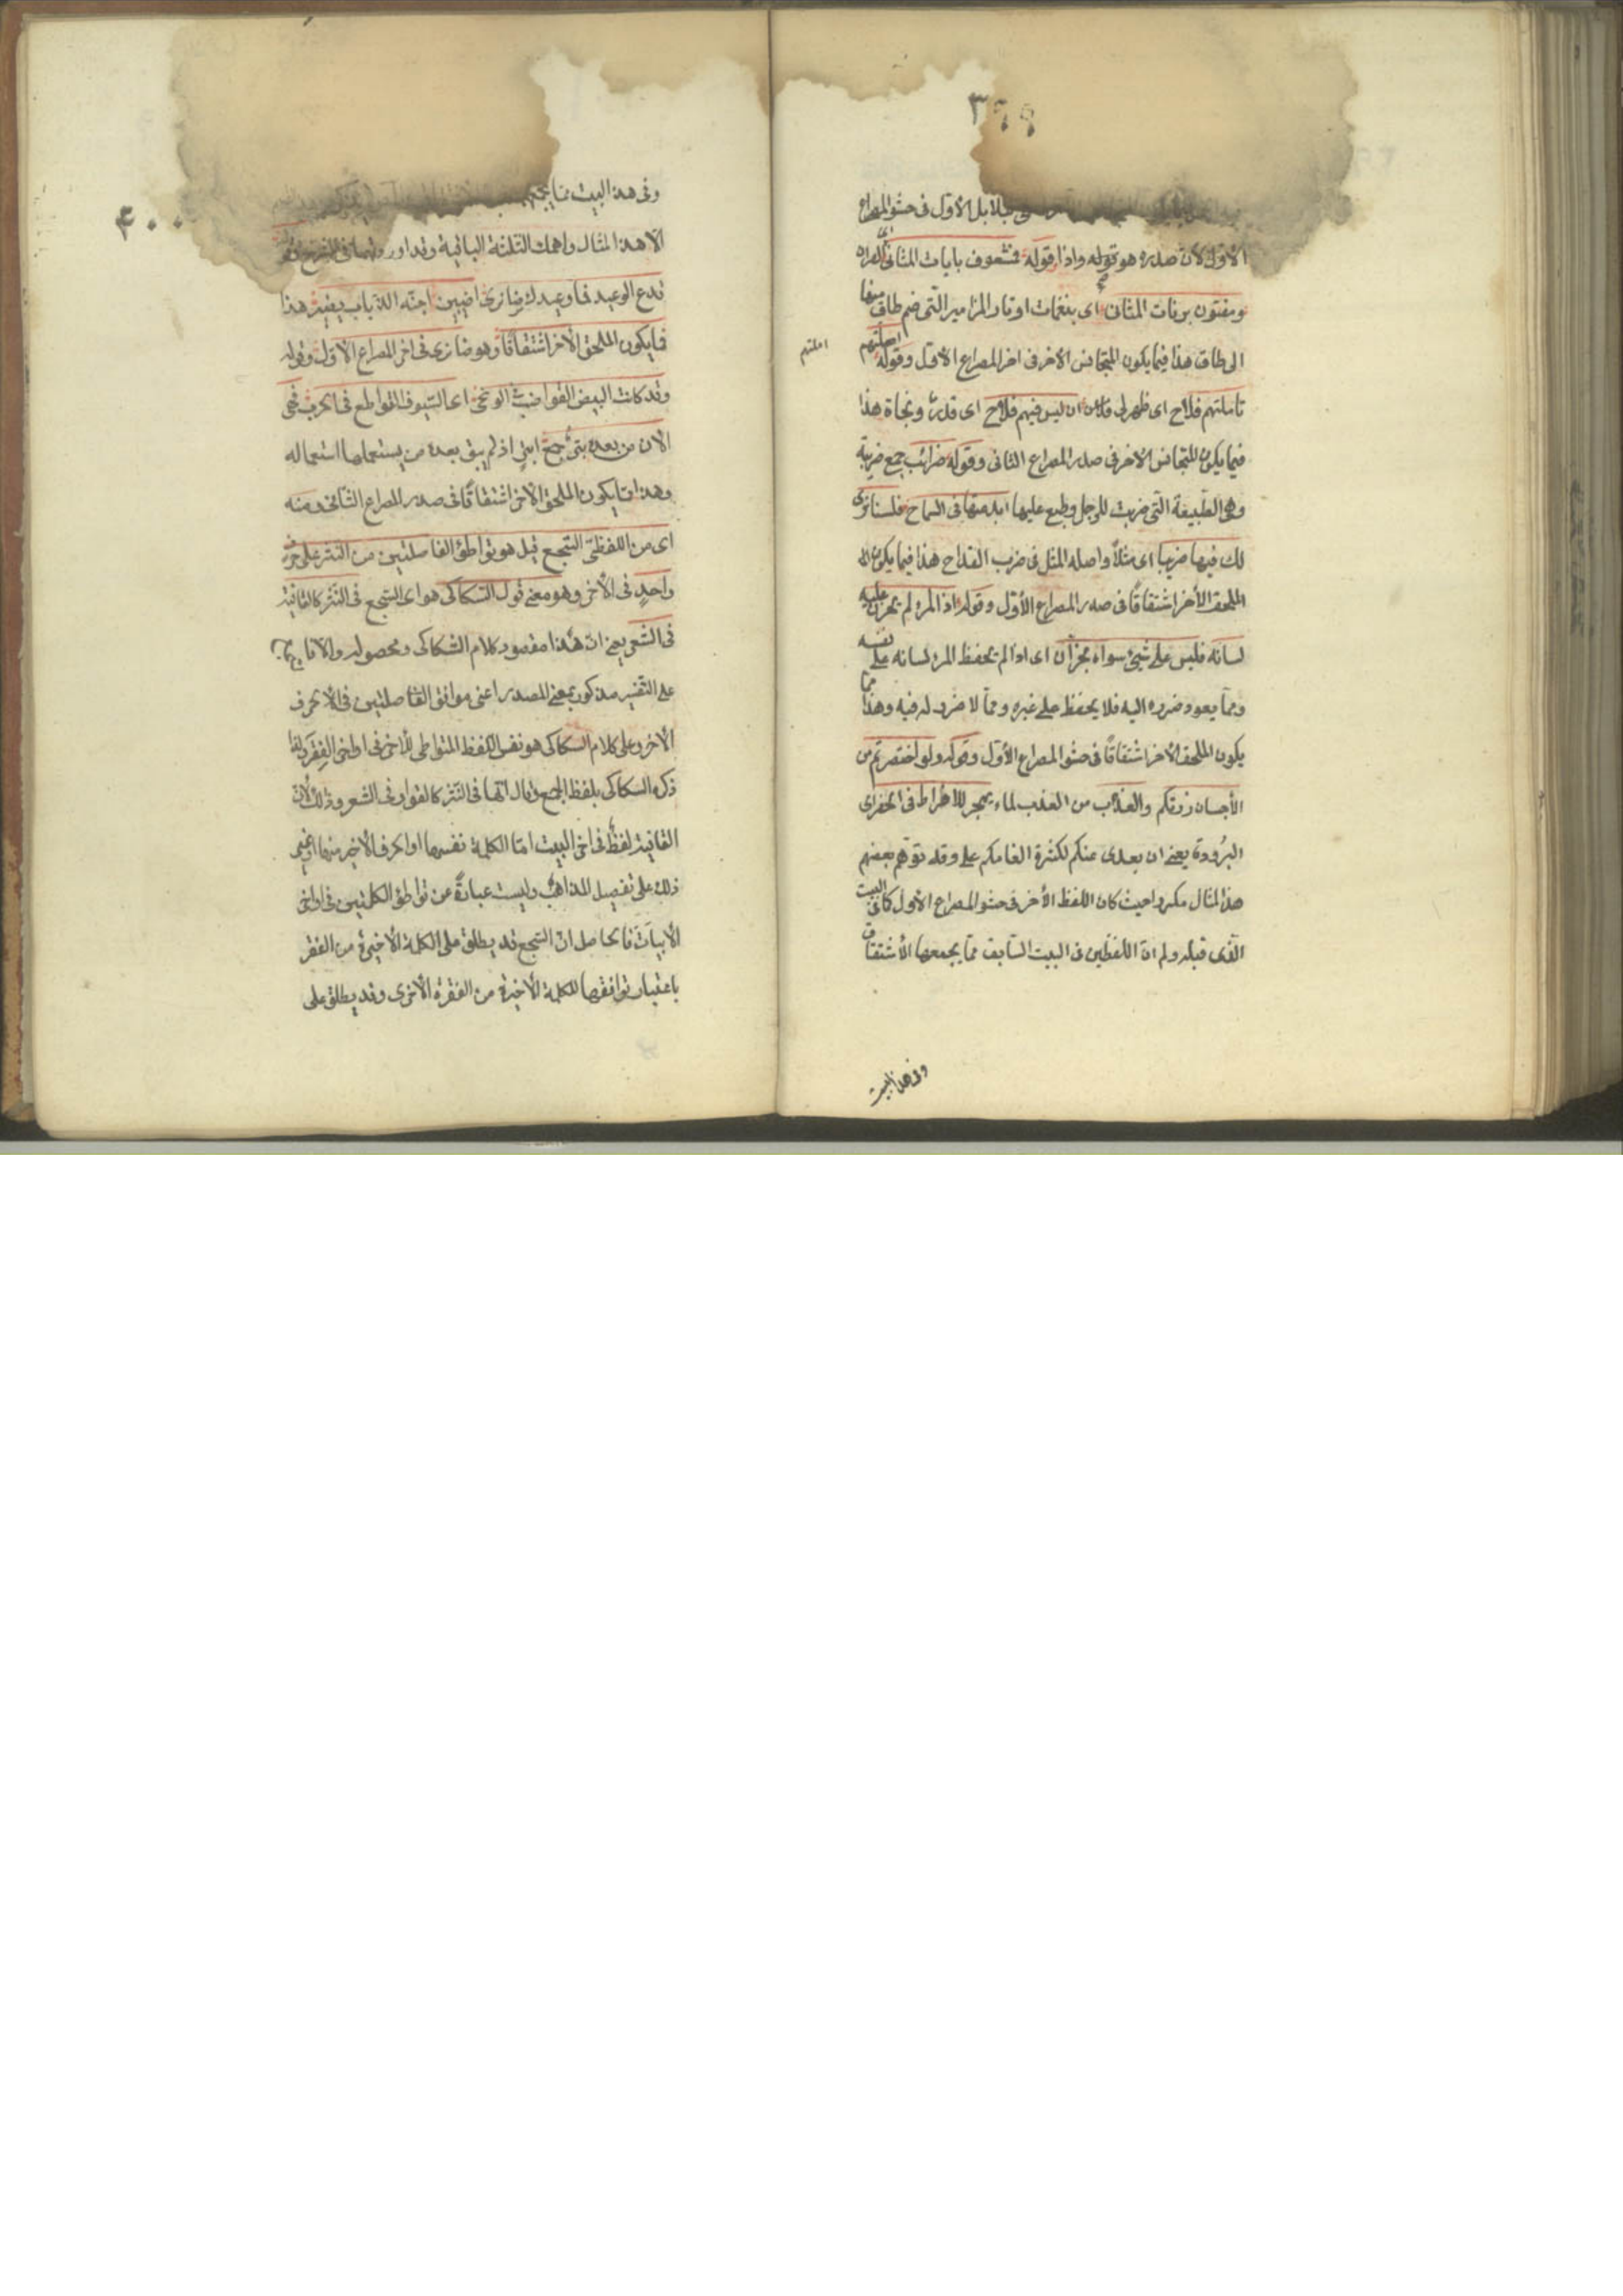 ٣٩٩
بلابل الأول فى حشو المصراع
الأول لان صدره هو قوله واذا وقوله فمشعوف بايات المثانى اى القران
ومفتون برنات المثانى اى بنغمات اوتار المزامير التى ضم طاق منها
الى طاق هذا فيما يكون المتجانس الاخر فى اخر المصراع الاول وقوله املتهم
املتهم
تاملتهم فلاح اى ظهر لى ان ليس فيهم فلاح اى فوز ونجاة هذا
فيما يكون المتجانس الاخر فى صدر المصراع الثانى وقوله ضرائب جمع ضريبة
وهى الطبيعة التى ضربت للرجل وطبع عليها ابدعتها فى السماح فلسنا نرى
لك فيها ضريبا اى مثلاً واصله المثل فى ضرب القداح هذا فيما يكون
الملحق الأخر اشتقاقًا فى صدر المصراع الأول وقوله اذا المرء لم يخزن عليه
لسانه فليس على شىء سواه بخزان اى اذا لم يحفظ المرء لسانه على نفسه
ومما يعود ضرره اليه فلا يحفظ على غيره ومما لا ضرر له فيه وهذا مما
يكون الملحق الأخر اشتقاقًا فى حشو المصراع الأول وقوله ولو اختصرتم من
الأحسان زرتكم والعذب من الماء يهجر للافراط فى الخصر اى
البرودة يعنى ان بعدى عنكم لكثرة انعامكم على وقد توهم بعضهم
هذا المثال مكررا حيث كان اللفظ الأخر فى حشو المصراع الأول كما فى البيت
الذى قبله ولم ان اللفظين فى البيت السابق مما يجمعهما الأشتقاق
وفى هذا البيت
٤٠٠
وفى هذا البيت مما
الا هذا المثال واهمل الثلثة الباقية وقد اوردتها فى الشرح
فدع الوعيد فما وعيدك ضائرى اطنين اجنحة الذباب يضير هذا
فيما يكون الملحق الأخر اشتقاقًا وهو ضائرى فى اخر المصراع الأول وقوله
وقد كانت البيض القواضب فى الوغى اى السيوف القواطع فى الحرب فهى
الان من بعده بتر جمع ابتر اذ لم يبق بعده من يستعملها استعماله
وهذا فيما يكون الملحق الأخر اشتقاقًا فى صدر المصراع الثانى ومنه
اى من اللفظى السجع قيل هو تواطؤ الفاصلتين من النثر على حرف
واحدٍ فى الأخر وهو معنى قول السكاكى هو اى السجع فى النثر كالقافية
فى الشعر يعنى ان هذا مقصود كلام السكاكى ومحصوله والا فالسجع
على التفسير مذكور بمعنى المصدر اعنى موافق الفاصلتين فى الأحرف
الأخر وعلى كلام السكاكى هو نفس اللفظ المتواطى للأخر فى اواخر الفقر ولذا
ذكره السكاكى بلفظ الجمع وقال انها فى النثر كالقوافى فى الشعر وذلك لأن
القافية لفظ فى اخر البيت اما الكلمة نفسها او الحرف الأخير منها او غير
ذلك على تفصيل المذاهب وليست عبارةً عن تواطؤ الكلمتين فى اواخر
الأبيات فالحاصل ان السجع قد يطلق على الكلمة الأخيرة من الفقر
باعتبار توافقها للكلمة الأخيرة من الفقرة الأخرى وقد يطلق على